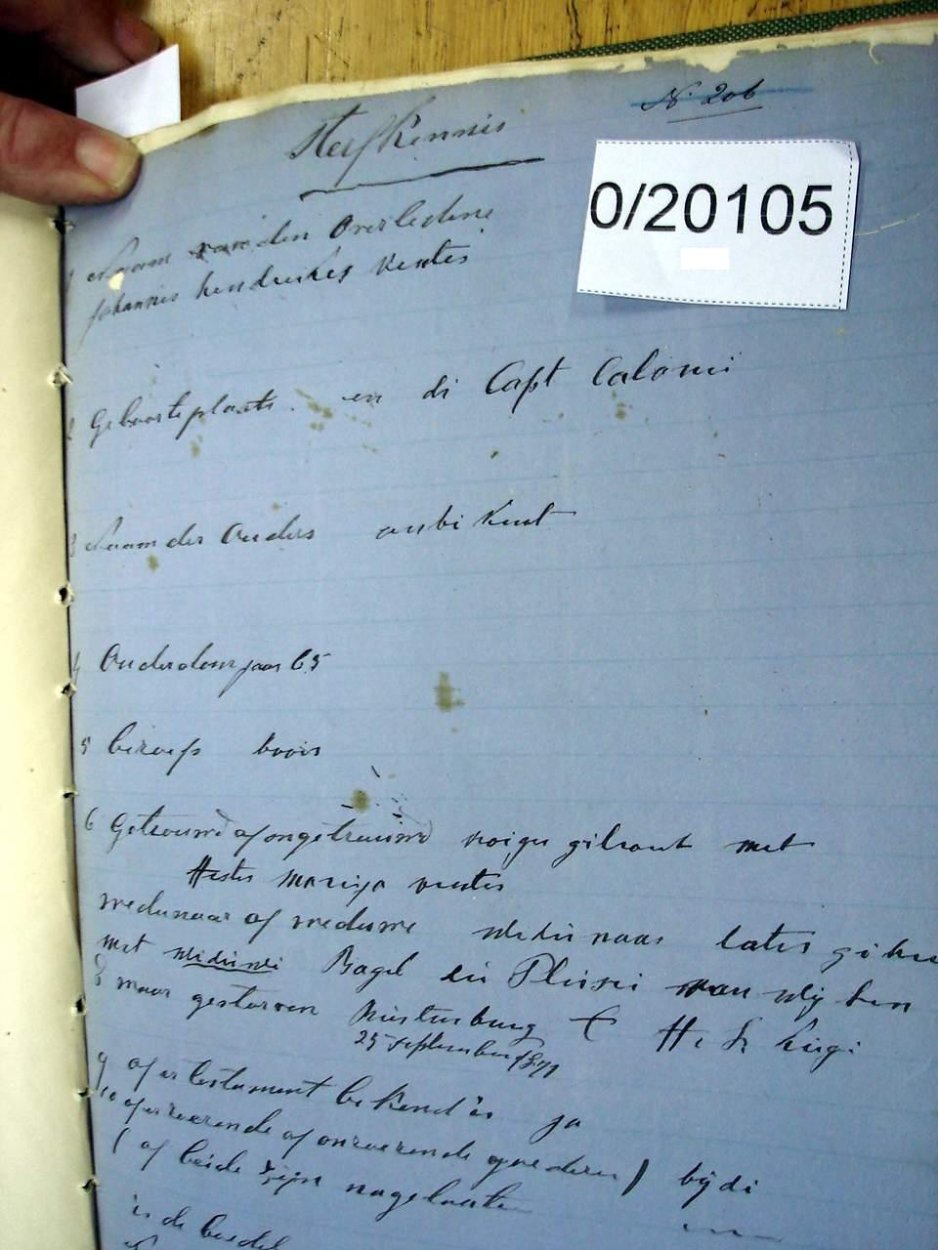 N. 206
Sterfkennis
0/20105
1 Naam van den Overledene
Johannes hendrikes venter
2 Geboorteplaats. in di Capt Calonii
3 Naam der Ouders onbikent
4 Ouderdom jaar 65
5 beroep boor
6 Getrouwd of ongetrouwd voige gitrout met
Hester mariya venter
wedunaar of weduwe widunaar later
met widuwi Ragel du Plisii van
8 waar gestorven
25 september 1891
9 of er testament bekend is ja
10 of er roerende of onroerende goederen) bij di
(of beide zijn nagelaaten
is de boedel